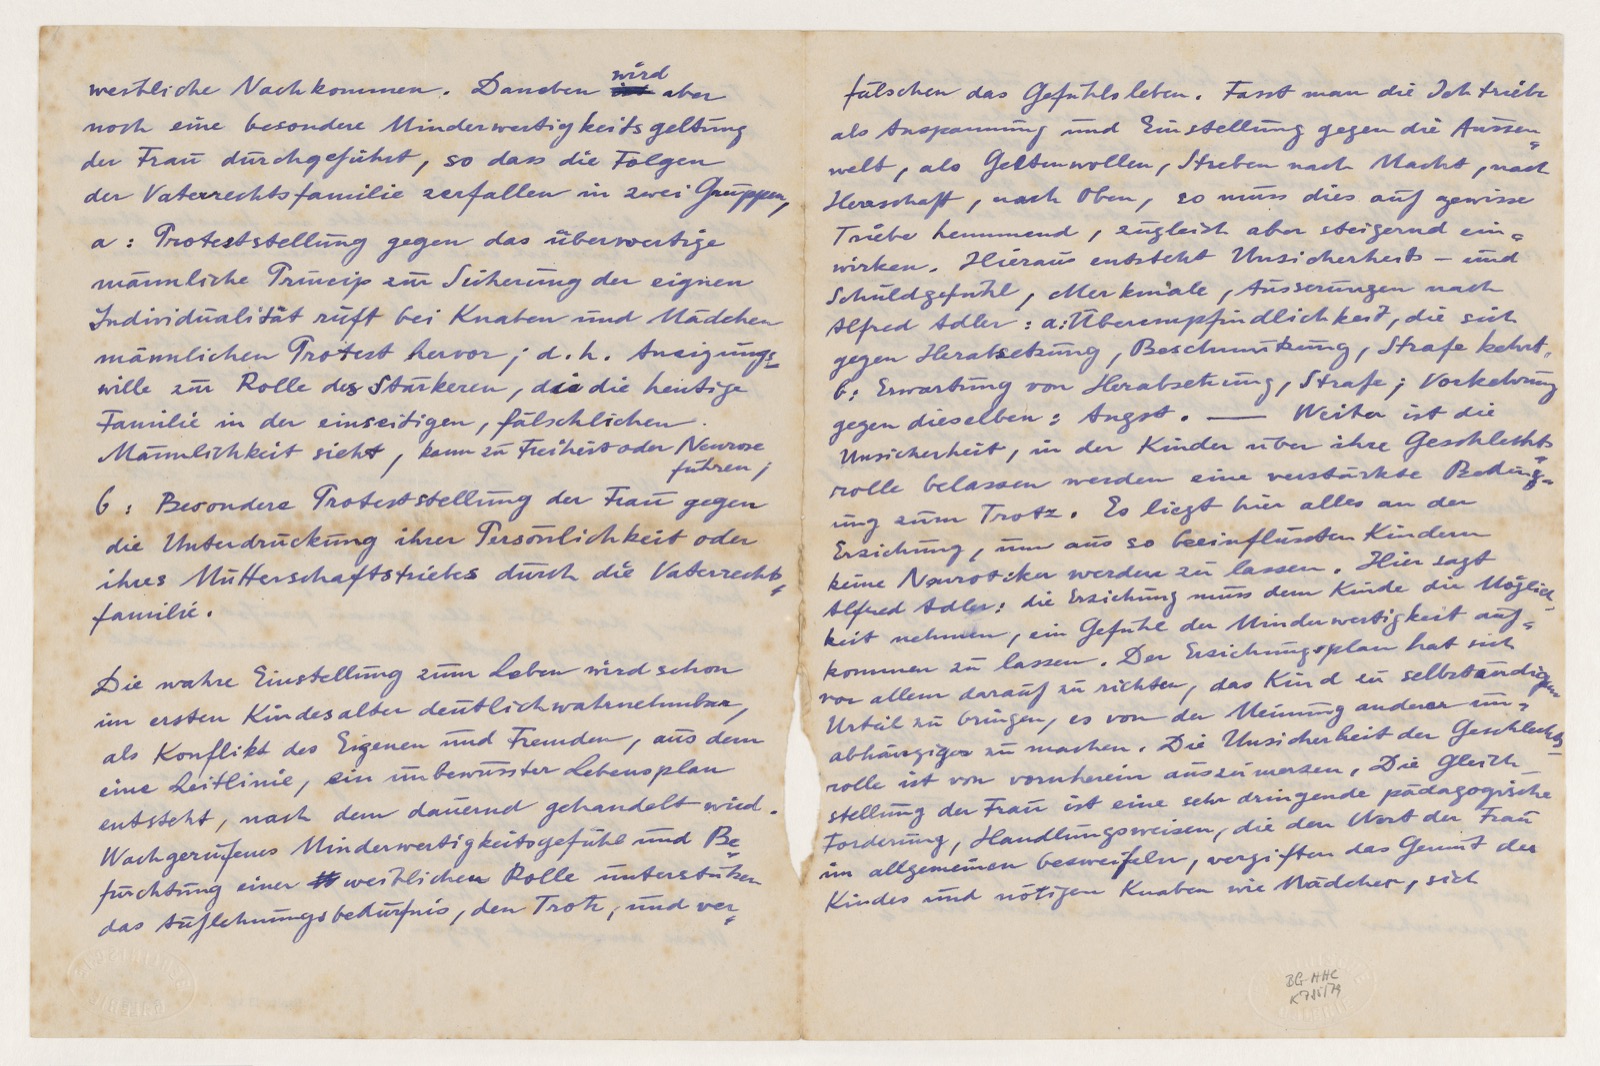 westliche Nachkommen. Daneben wird aber
noch eine besondere Minderwertigkeitsgeltung
der Frau durchgeführt, so dass die Folgen
der Vaterrechtsfamilie zerfallen in zwei Gruppen,
a: Proteststellung gegen das überwertige
männliche Princip zur Sicherung der eignen
Individualität ruft bei Knaben und Mädchen
männlichen Protest hervor; d.h. Aneigungs-
wille zur Rolle des Stärkeren, die die heutige
Familie in der einseitigen, fälschlichen
Männlichkeit sieht, kann zu Freiheit oder Neurose
führen;
b: Besondere Proteststellung der Frau gegen
die Unterdrückung ihrer Persönlichkeit oder
ihres Mutterschaftstriebes durch die Vaterrechts=
familie.
Die wahre Einstellung zum Leben wird schon
im ersten Kindesalter deutlich wahrnehmbar,
als Konflikt des Eigenen und Fremden, aus dem
eine Leitlinie, ein unbewusster Lebensplan
entsteht, nach dem dauernd gehandelt wird.
Wachgerufenes Minderwertigkeitsgefühl und Be=
fürchtung einer weiblichen Rolle unterstützen
das Auflehnungsbedürfnis, den Trotz, und ver=
fälschen das Gefühlsleben. Fasst man die Ichtriebe
als Anspannung und Einstellung gegen die Aussen=
welt, als Geltenwollen, Streben nach Macht, nach
Herrschaft, nach Oben, so muss dies auf gewisse
Triebe hemmend, zugleich aber steigernd ein=
wirken. Hieraus entsteht Unsicherheits- und
Schuldgefühl, Merkmale, Äusserungen nach
Alfred Adler: a: Überempfindlichkeit, die sich
gegen Herabsetzung, Beschmutzung, Strafe kehrt.
b: Erwartung von Herabsetzung, Strafe; Vorkehrung
gegen dieselben: Angst. — Weiter ist die
Unsicherheit, in der Kinder über ihre Geschlechts=
rolle belassen werden eine verstärkte Beding=
ung zum Trotz. Es liegt hier alles an der
Erziehung, um aus so beeinflussten Kindern
keine Neurotiker werden zu lassen. Hier sagt
Alfred Adler: die Erziehung muss dem Kinde die Möglich=
keit nehmen, ein Gefühl der Minderwertigkeit auf=
kommen zu lassen. Der Erziehungsplan hat sich
vor allem darauf zu richten, das Kind zu selbständigem
Urteil zu bringen, es von der Meinung anderer un=
abhängiger zu machen. Die Unsicherheit der Geschlechts=
rolle ist von vornherein auszumerzen. Die Gleich-
stellung der Frau ist eine sehr dringende pädagogische
Forderung, Handlungsweisen, die den Wert der Frau
im allgemeinen bezweifeln, vergiften das Gemüt des
Kindes und nötigen Knaben wie Mädchen, sich
BG-HHC
K 735/79